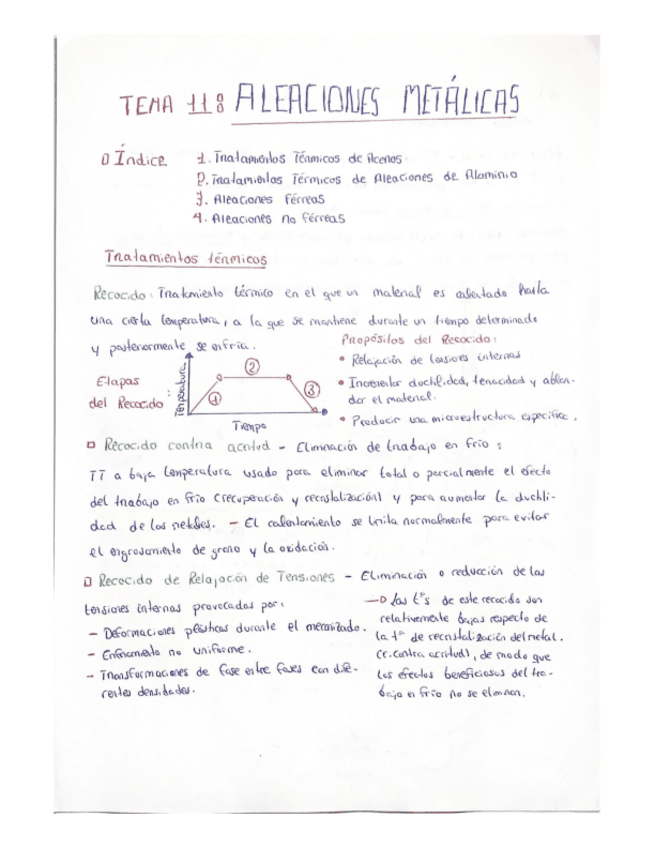 TEMA 11: ALEACIONES METÁLICAS
Índice
1. Tratamientos Térmicos de Aceros.
2. Tratamientos Térmicos de Aleaciones de Aluminio
3. Aleaciones Férreas
4. Aleaciones no férreas
Tratamientos térmicos
Recocido: Tratamiento térmico en el que un material es calentado hasta
una cierta temperatura, a la que se mantiene durante un tiempo determinado
y posteriormente se enfría.
Propósitos del Recocido:
• Relajación de tensiones internas
• Incrementar ductilidad, tenacidad y ablan-
dar el material.
• Producir una microestructura específica.
Etapas
del Recocido:
Temperatura
1
2
3
Tiempo
Recocido contra acritud - Eliminación de trabajo en frío:
TT a baja temperatura usado para eliminar total o parcialmente el efecto
del trabajo en frío (recuperación y recristalización) y para aumentar la ductili-
dad de los metales. - El calentamiento se limita normalmente para evitar
el engrosamiento de grano y la oxidación.
Recocido de Relajación de Tensiones - Eliminación o reducción de las
tensiones internas provocadas por:
- Deformaciones plásticas durante el mecanizado.
- Enfriamiento no uniforme.
- Transformaciones de fase entre fases con dife-
rentes densidades.
→ las tªs de este recocido son
relativamente bajas respecto de
la tª de recristalización del metal.
(r. contra acritud), de modo que
los efectos beneficiosos del tra-
bajo en frío no se eliminan.